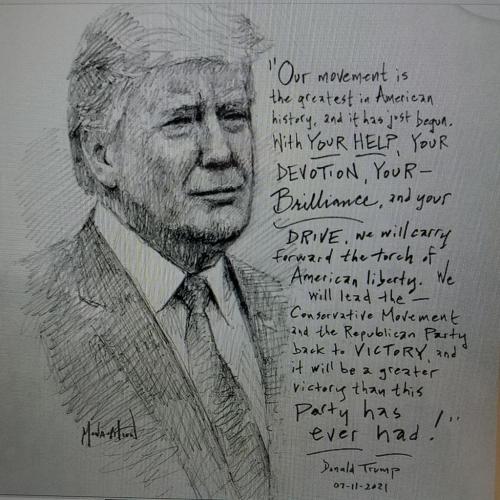 "Our movement is
the greatest in American
history, and it has just begun.
With YOUR HELP, YOUR
DEVOTION, YOUR—
Brilliance, and your
DRIVE, we will carry
forward the torch of
American liberty. We
will lead the —
Conservative Movement
and the Republican Party
back to VICTORY, and
it will be a greater
victory than this
Party has
ever had!"
Donald Trump
07-11-2021